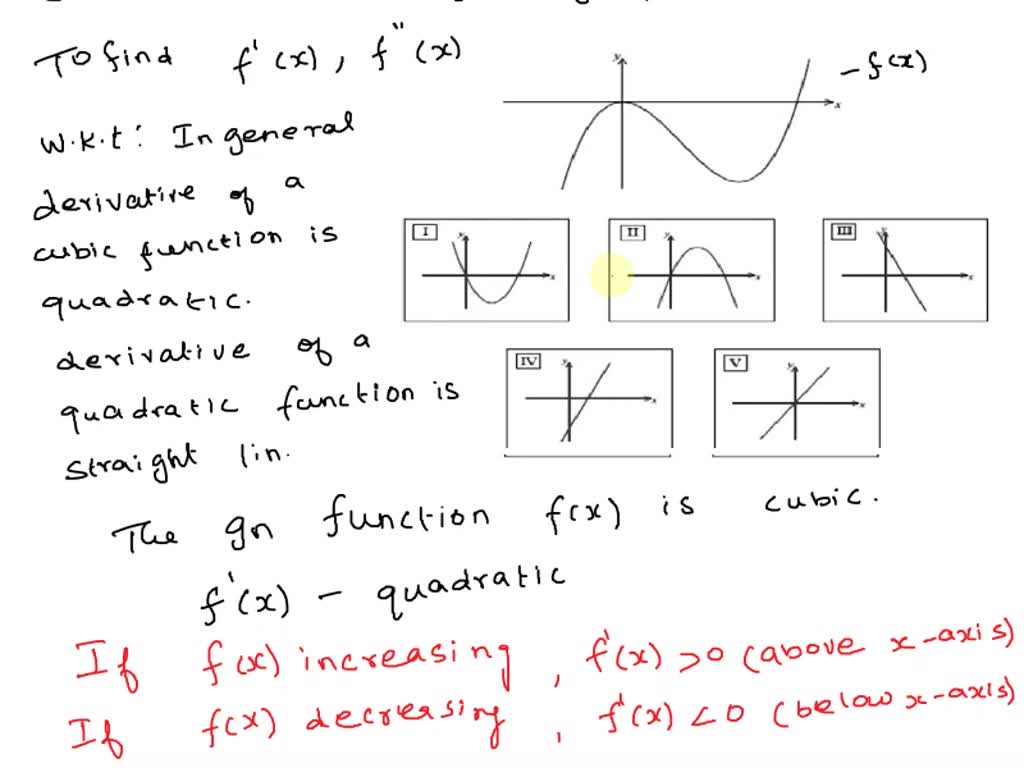 To find f'(x), f"(x)
y
x
- f(x)
w.k.t: In general
derivative of a
cubic function is
quadratic.
derivative of a
quadratic function is
straight lin.
I
y
x
II
y
x
III
y
x
IV
y
x
V
y
x
The gn function f(x) is cubic.
f'(x) - quadratic
If f(x) increasing, f'(x) >0 (above x-axis)
If f(x) decreasing, f'(x) <0 (below x-axis)